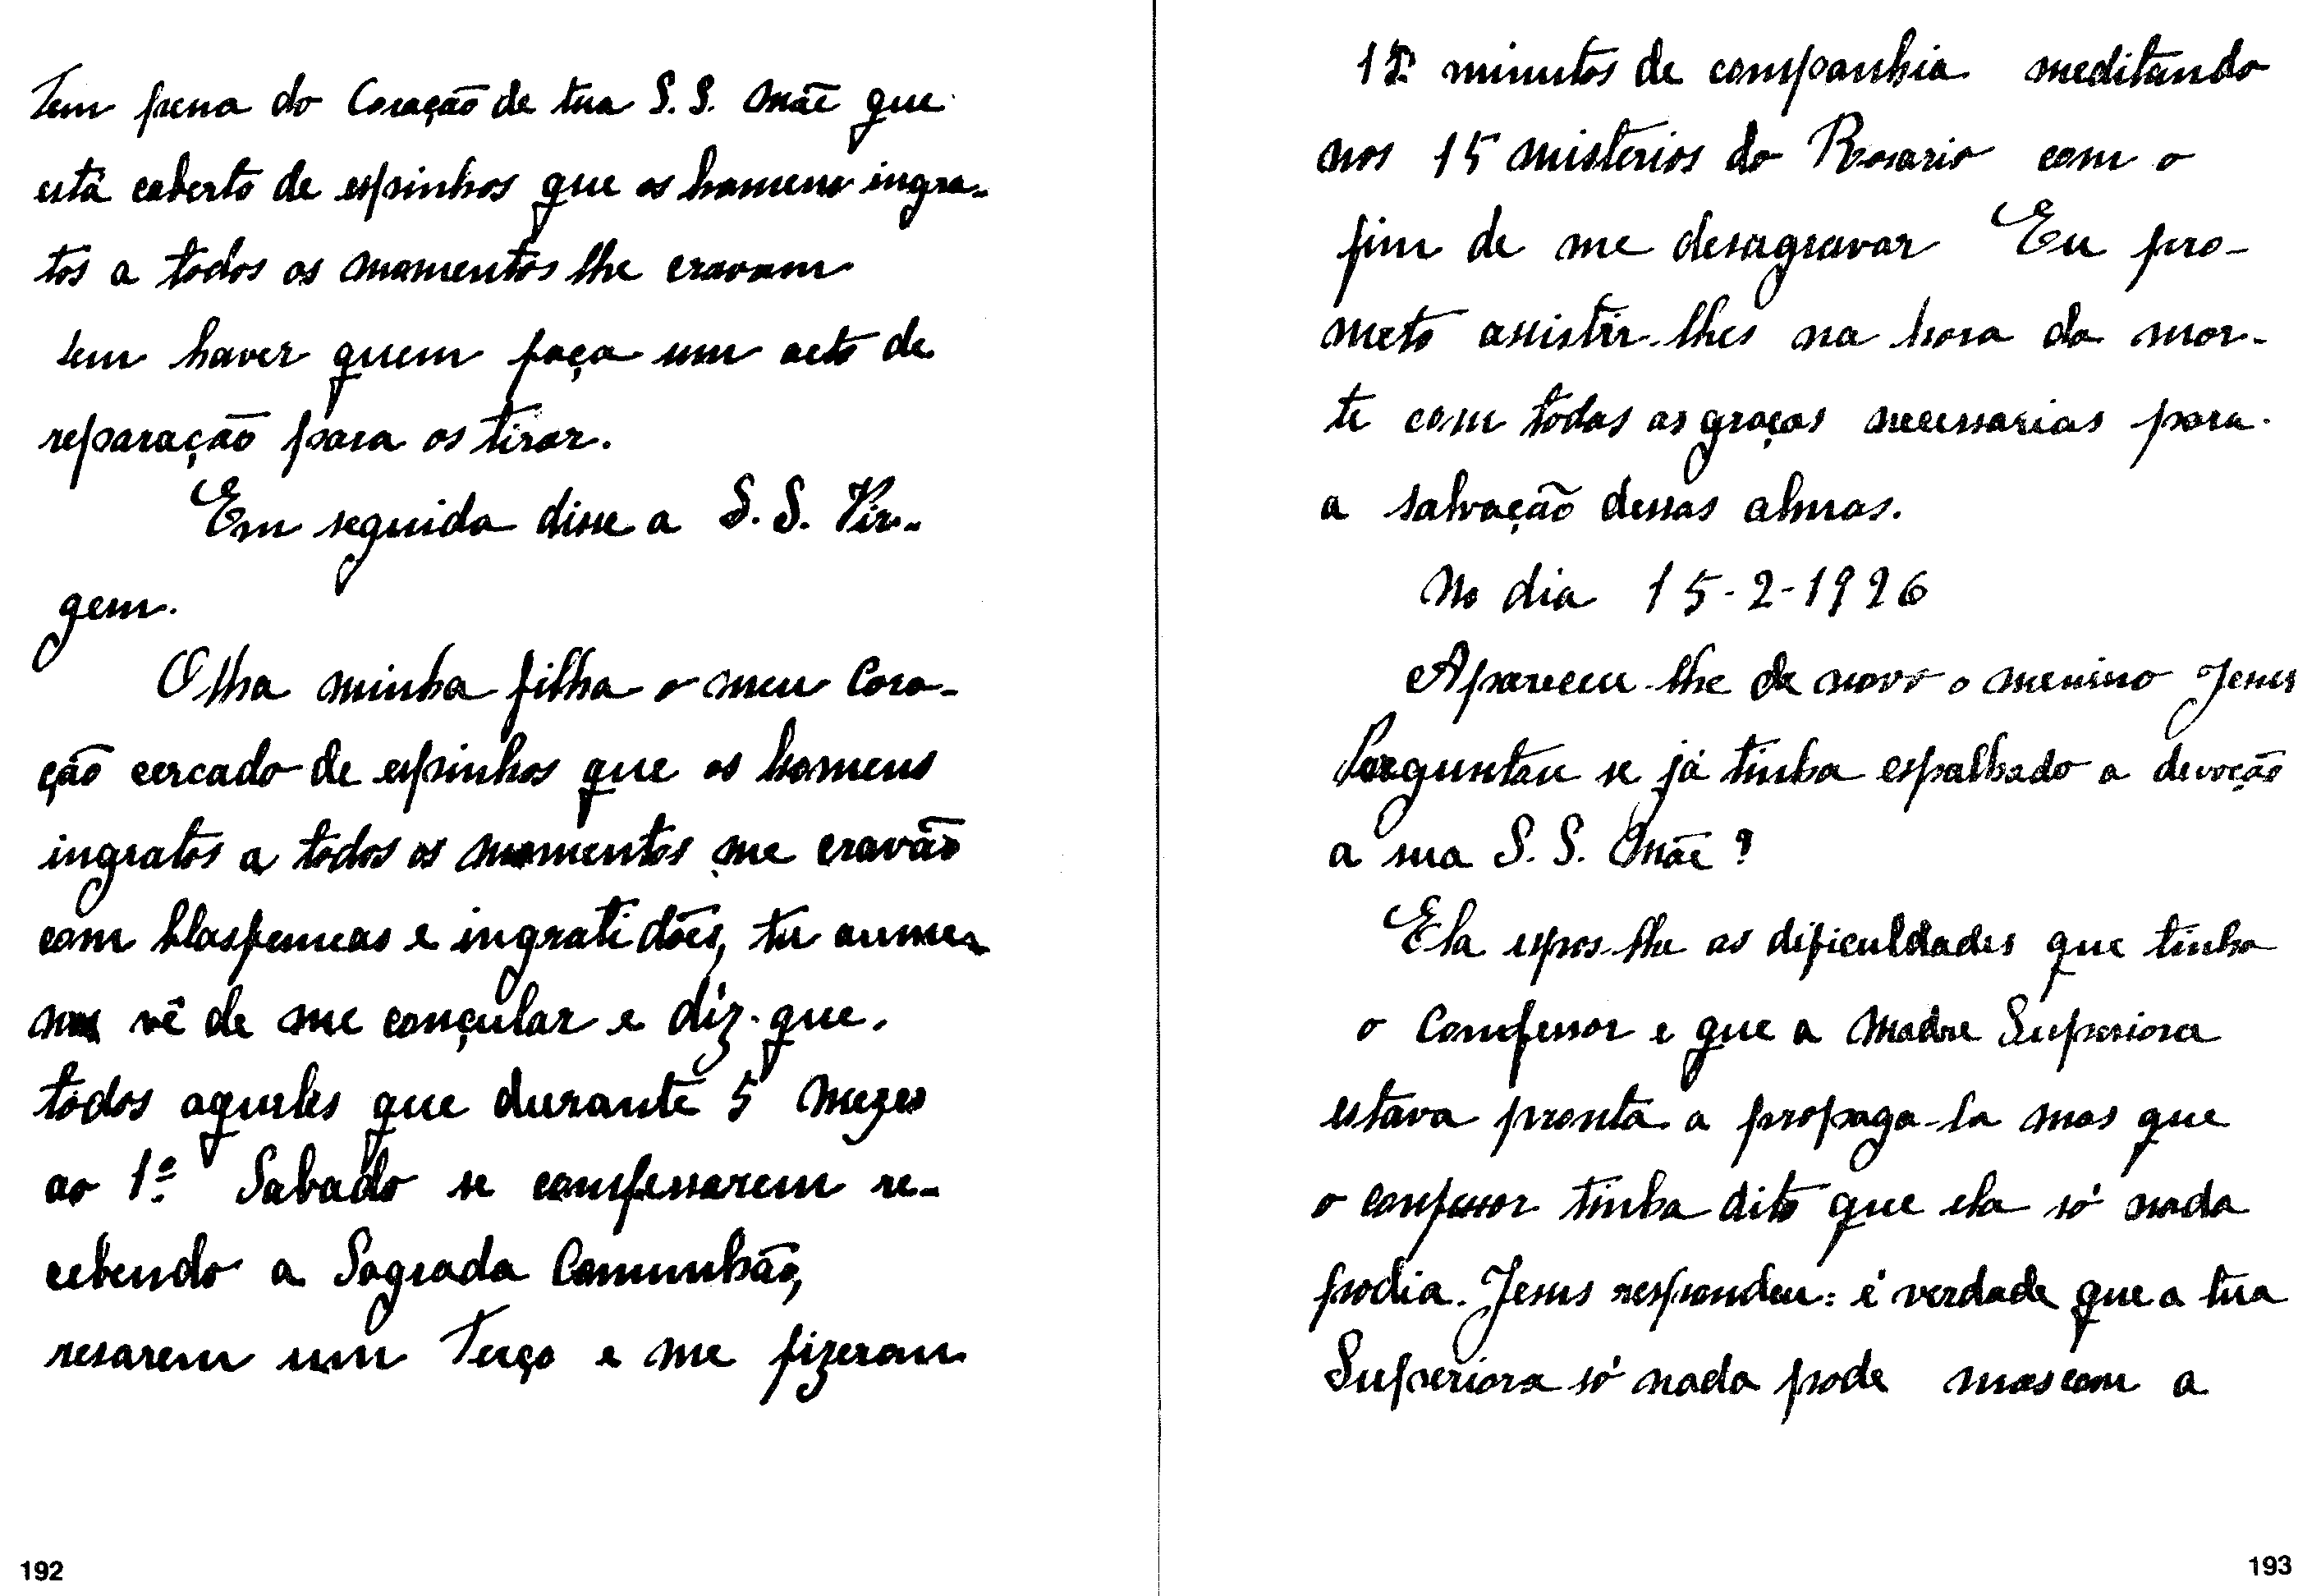 Tem pena do Coração de tua S. S. Mãe que
está coberto de espinhos que os homens ingra-
tos a todos os momentos lhe cravam
sem haver quem faça um acto de
reparação para os tirar.
Em seguida disse a S. S. Vir-
gem.
Olha minha filha o meu Cora-
ção cercado de espinhos que os homens
ingratos a todos os momentos me cravão
com blasfemeas e ingratidões, tu aome-
nos vê de me conçular e diz que
todos aqueles que durante 5 mezes
ao 1º Sabado se comfessarem re-
cebendo a Sagrada Comunhão,
resarem um Terço e me fizeram
15 minutos de companhia meditando
nos 15 misterios do Rosario com o
fim de me desagravar Eu pro-
meto assistir-lhes na hora da mor-
te com todas as graças necessarias para
a salvação dessas almas.
No dia 15-2-1926
Apareceu-lhe de novo o menino Jesus
Perguntou se já tinha espalhado a devoção
a sua S. S. Mãe?
Ela espos-lhe as dificuldades que tinha
o Comfessor e que a Madre Superiora
estava pronta a propaga-la mas que
o confessor tinha dito que ela só nada
podia. Jesus respondeu: é verdade que a tua
Superiora só nada pode mas com a
192
193